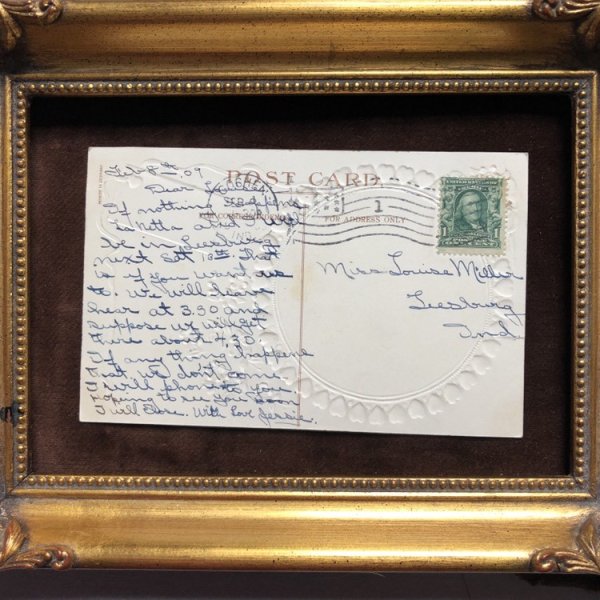 Feb 8th 09
POST CARD.
Dear
If nothing happens
and I will
be in Leesburg
next Sat 13th that
is if you want us
to. We will leave
hear at 3.50 and
suppose we will get
there about 4.30
If any thing happens
that we don't come
I will phone to you
Hoping to see you soon
I will close. With Love Jessie.
FEB
IND
1
FOR ADDRESS ONLY
Miss Louise Miller
Leesburg
Ind